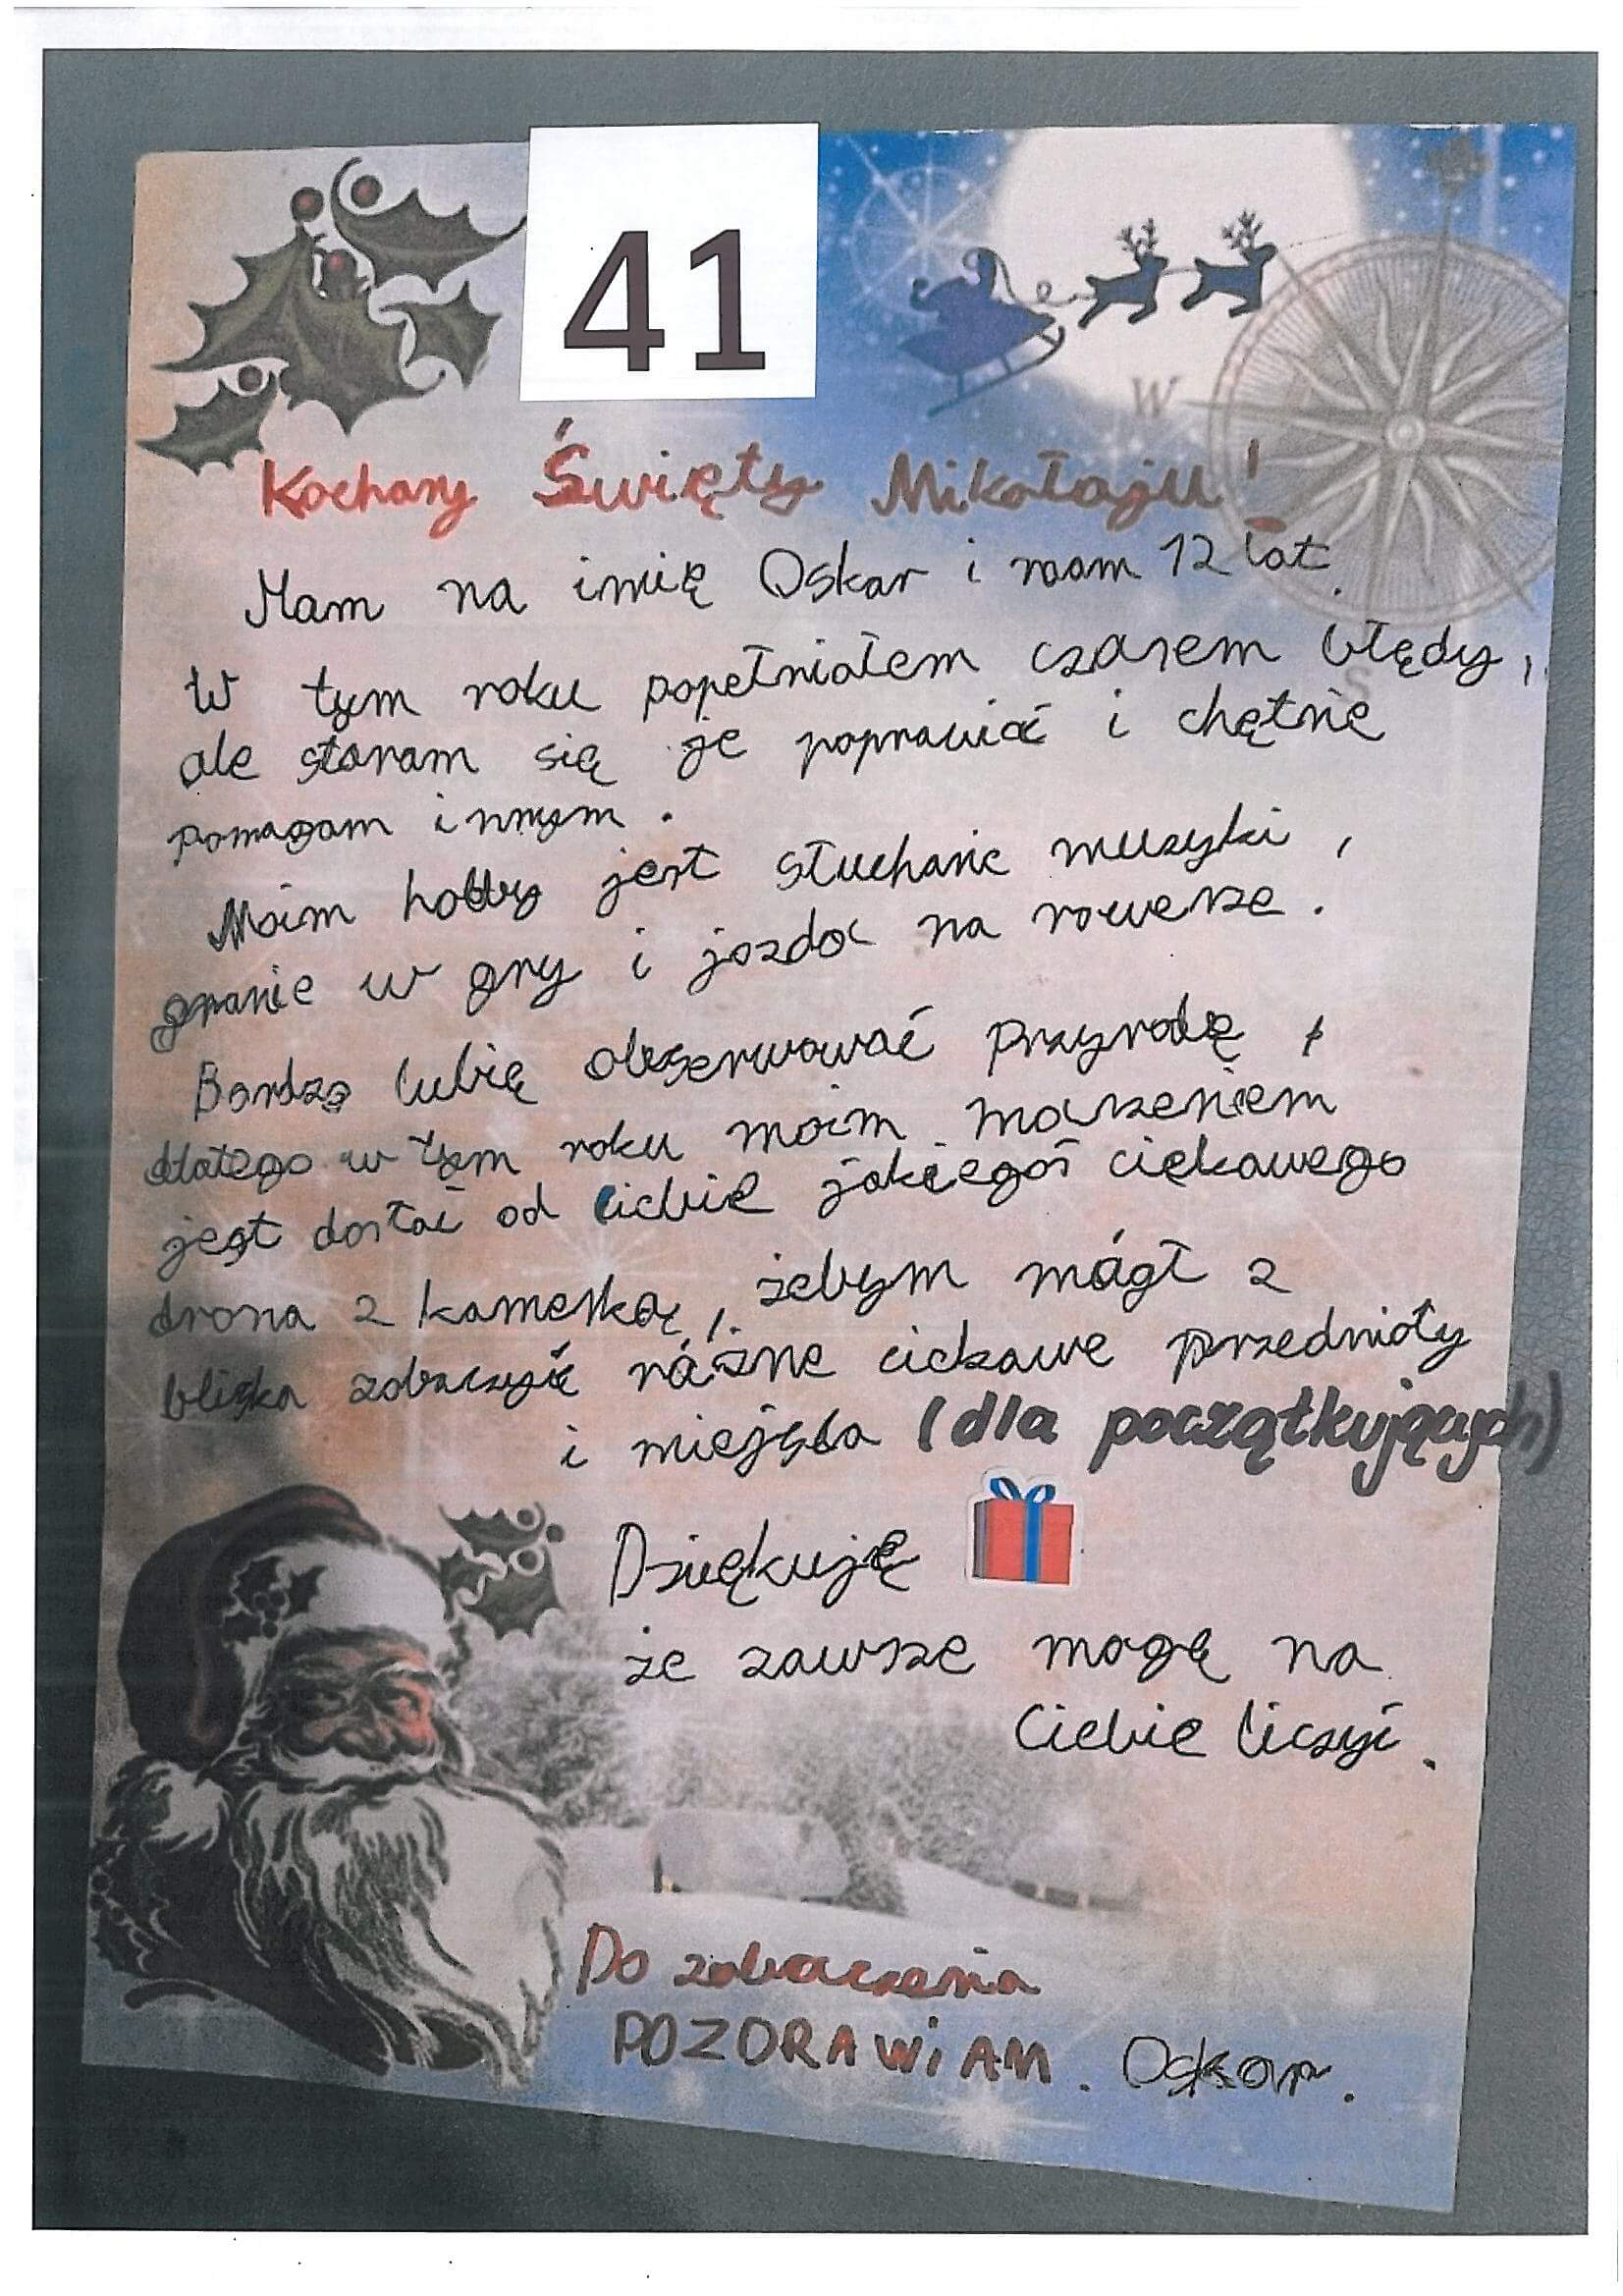 41
W
Kochany Święty Mikołaju!
Mam na imię Oskar i mam 12 lat.
W tym roku popełniałem czasem błędy,
S
ale staram się je poprawiać i chętnie
pomagam innym.
Moim hobby jest słuchanie muzyki,
granie w gry i jazda na rowerze.
Bardzo lubię obserwować przyrodę,
dlatego w tym roku moim marzeniem
jest dostać od Ciebie jakiegoś ciekawego
drona z kamerką, żebym mógł z
bliska zobaczyć różne ciekawe przedmioty
i miejsca (dla początkujących)
Dziękuję
że zawsze mogę na
Ciebie liczyć.
Do zobaczenia
POZDRAWIAM. Oskar.